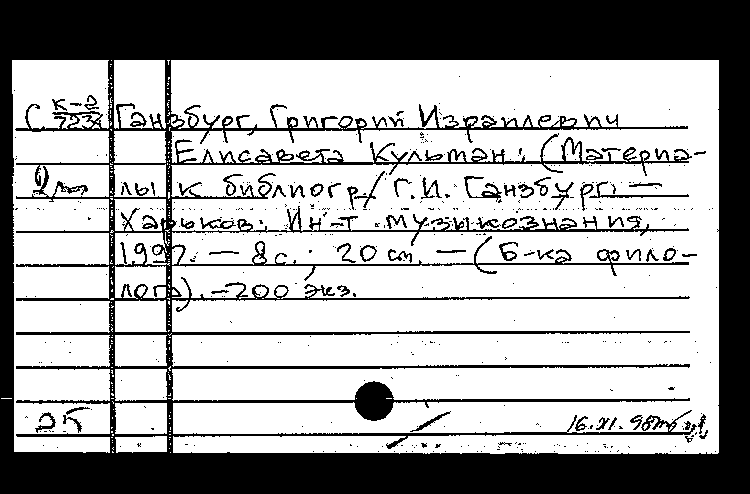 С К-2/7234 Ганзбург, Григорий Израилевич
Елисавета Кульман: (Материа-
2 лы к библиогр.) / Г.И. Ганзбург. —
Харьков: Ин-т музыкознания,
1997. — 8 с.; 20 см. — (Б-ка фило-
лога). — 200 экз.
16.XI.98